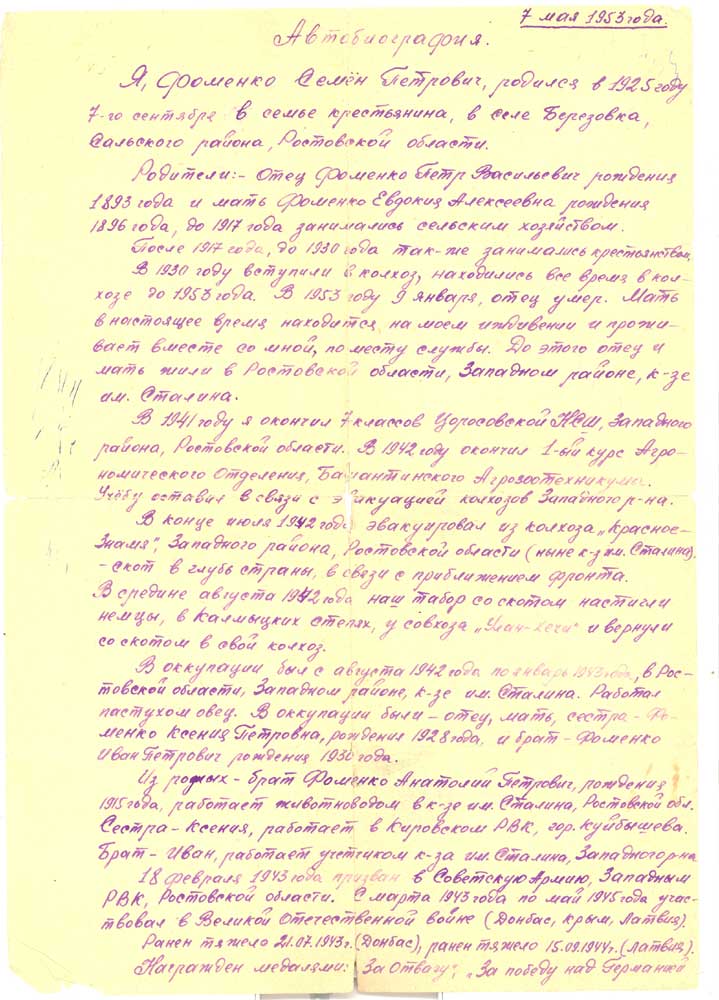 7 мая 1953 года.
Автобиография.
Я, Фоменко Семён Петрович, родился в 1925 году
7-го сентября в семье крестьянина, в селе Березовка,
Сальского района, Ростовской области.
Родители:- Отец Фоменко Петр Васильевич рождения
1893 года и мать Фоменко Евдокия Алексеевна рождения
1896 года, до 1917 года занимались сельским хозяйством.
После 1917 года, до 1930 года так-же занимались крестьянством.
В 1930 году вступили в колхоз, находились все время в кол-
хозе до 1953 года. В 1953 году 9 января, отец умер. Мать
в настоящее время находится на моем иждивении и прожи-
вает вместе со мной, по месту службы. До этого отец и
мать жили в Ростовской области, Западном районе, к-зе
им. Сталина.
В 1941 году я окончил 7 классов НСШ, Западного
района, Ростовской области. В 1942 году окончил 1-ый курс Агро-
номического Отделения, Агрозоотехникума.
Учёбу оставил в связи с эвакуацией колхозов Западного р-на.
В конце июля 1942 года эвакуировал из колхоза „Красное-
Знамя", Западного района, Ростовской области (ныне к-з им. Сталина).
- скот в глубь страны, в связи с приближением фронта.
В средине августа 1942 года наш табор со скотом настигли
немцы, в Калмыцких степях, у совхоза „Улан-Хечи" и вернули
со скотом в свой колхоз.
В оккупации был с августа 1942 года по январь 1943 года, в Рос-
товской области, Западном районе, к-зе им. Сталина. Работал
пастухом овец. В оккупации были - отец, мать, сестра - Фо-
менко Ксения Петровна, рождения 1928 года, и брат - Фоменко
Иван Петрович рождения 1930 года.
Из родных - брат Фоменко Анатолий Петрович, рождения
1915 года, работает животноводом в к-зе им. Сталина, Ростовской обл.
Сестра - Ксения, работает в Кировском РВК, гор. Куйбышева.
Брат - Иван, работает учетчиком к-за им. Сталина, Западного р-на
18 февраля 1943 года призван в Советскую Армию, Западным
РВК, Ростовской области. С марта 1943 года по май 1945 года учас-
твовал в Великой Отечественной войне (Донбас, Крым, Латвия).
Ранен тяжело 21.07.1943 г. (Донбас), ранен тяжело 15.09.1944 г. (Латвия).
Награжден медалями: „За Отвагу", „За победу над Германией